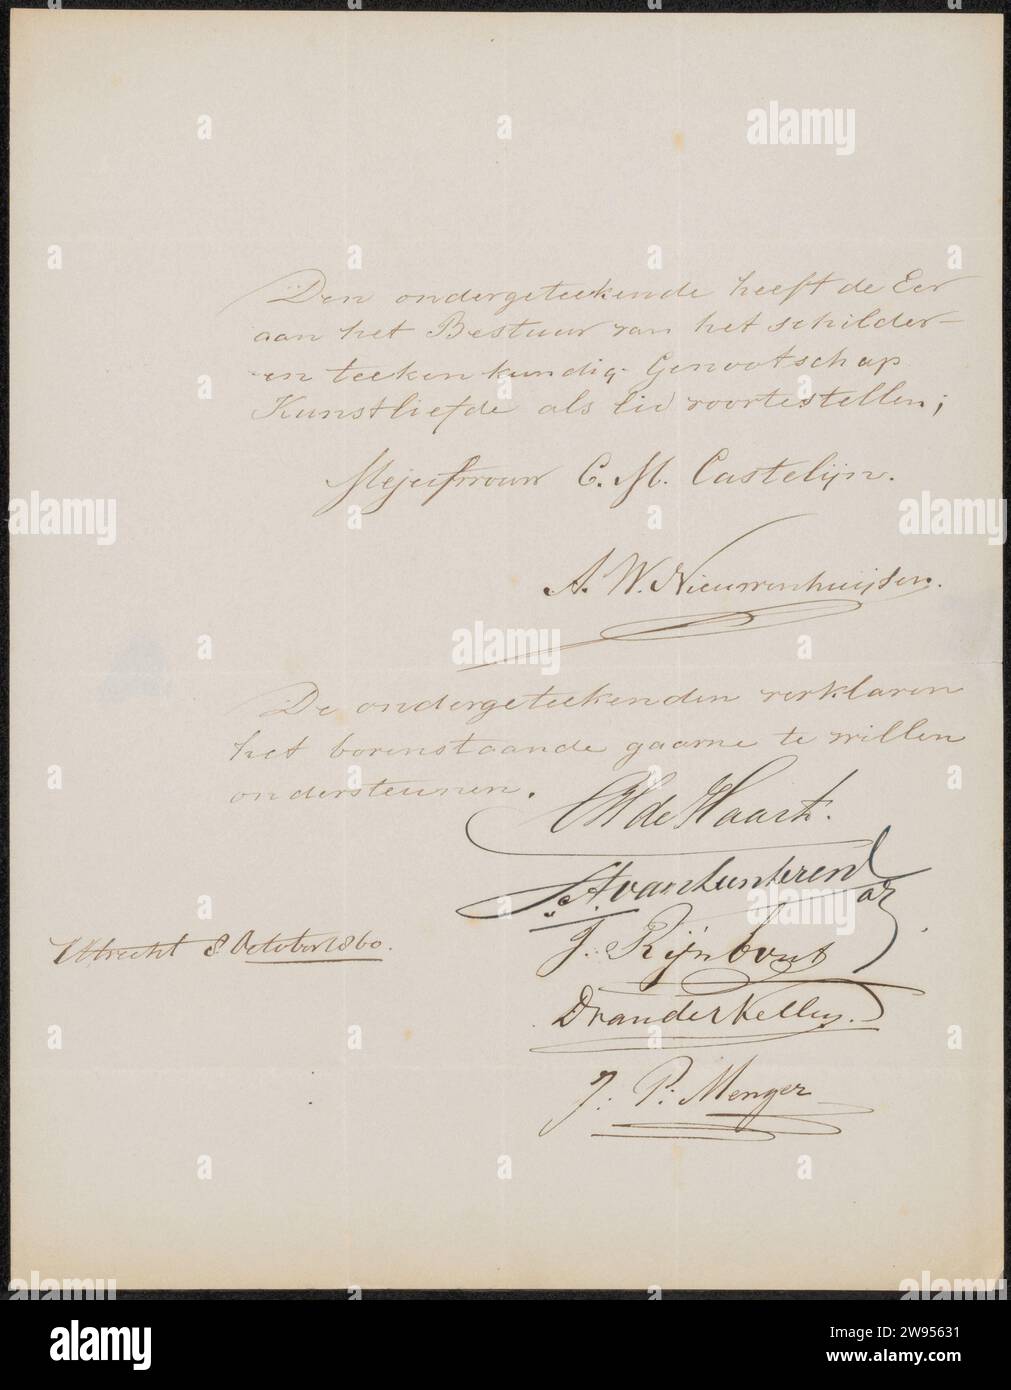 Den ondergeteekende heeft de Eer
aan het Bestuur van het schilder-
en teekenkundig Genootschap
Kunstliefde als lid voortestellen;
Mejufvrouw C. M. Castelijn.
A. W. Nieuwenhuijsen.
De ondergeteekenden verklaren
het bovenstaande gaarne te willen
ondersteunen.
de Haart.
Utrecht 8 October 1860.
J. Rijnbout
D van der Kellen.
J: P: Menger
alamy
Image ID: 2W95631
www.alamy.com